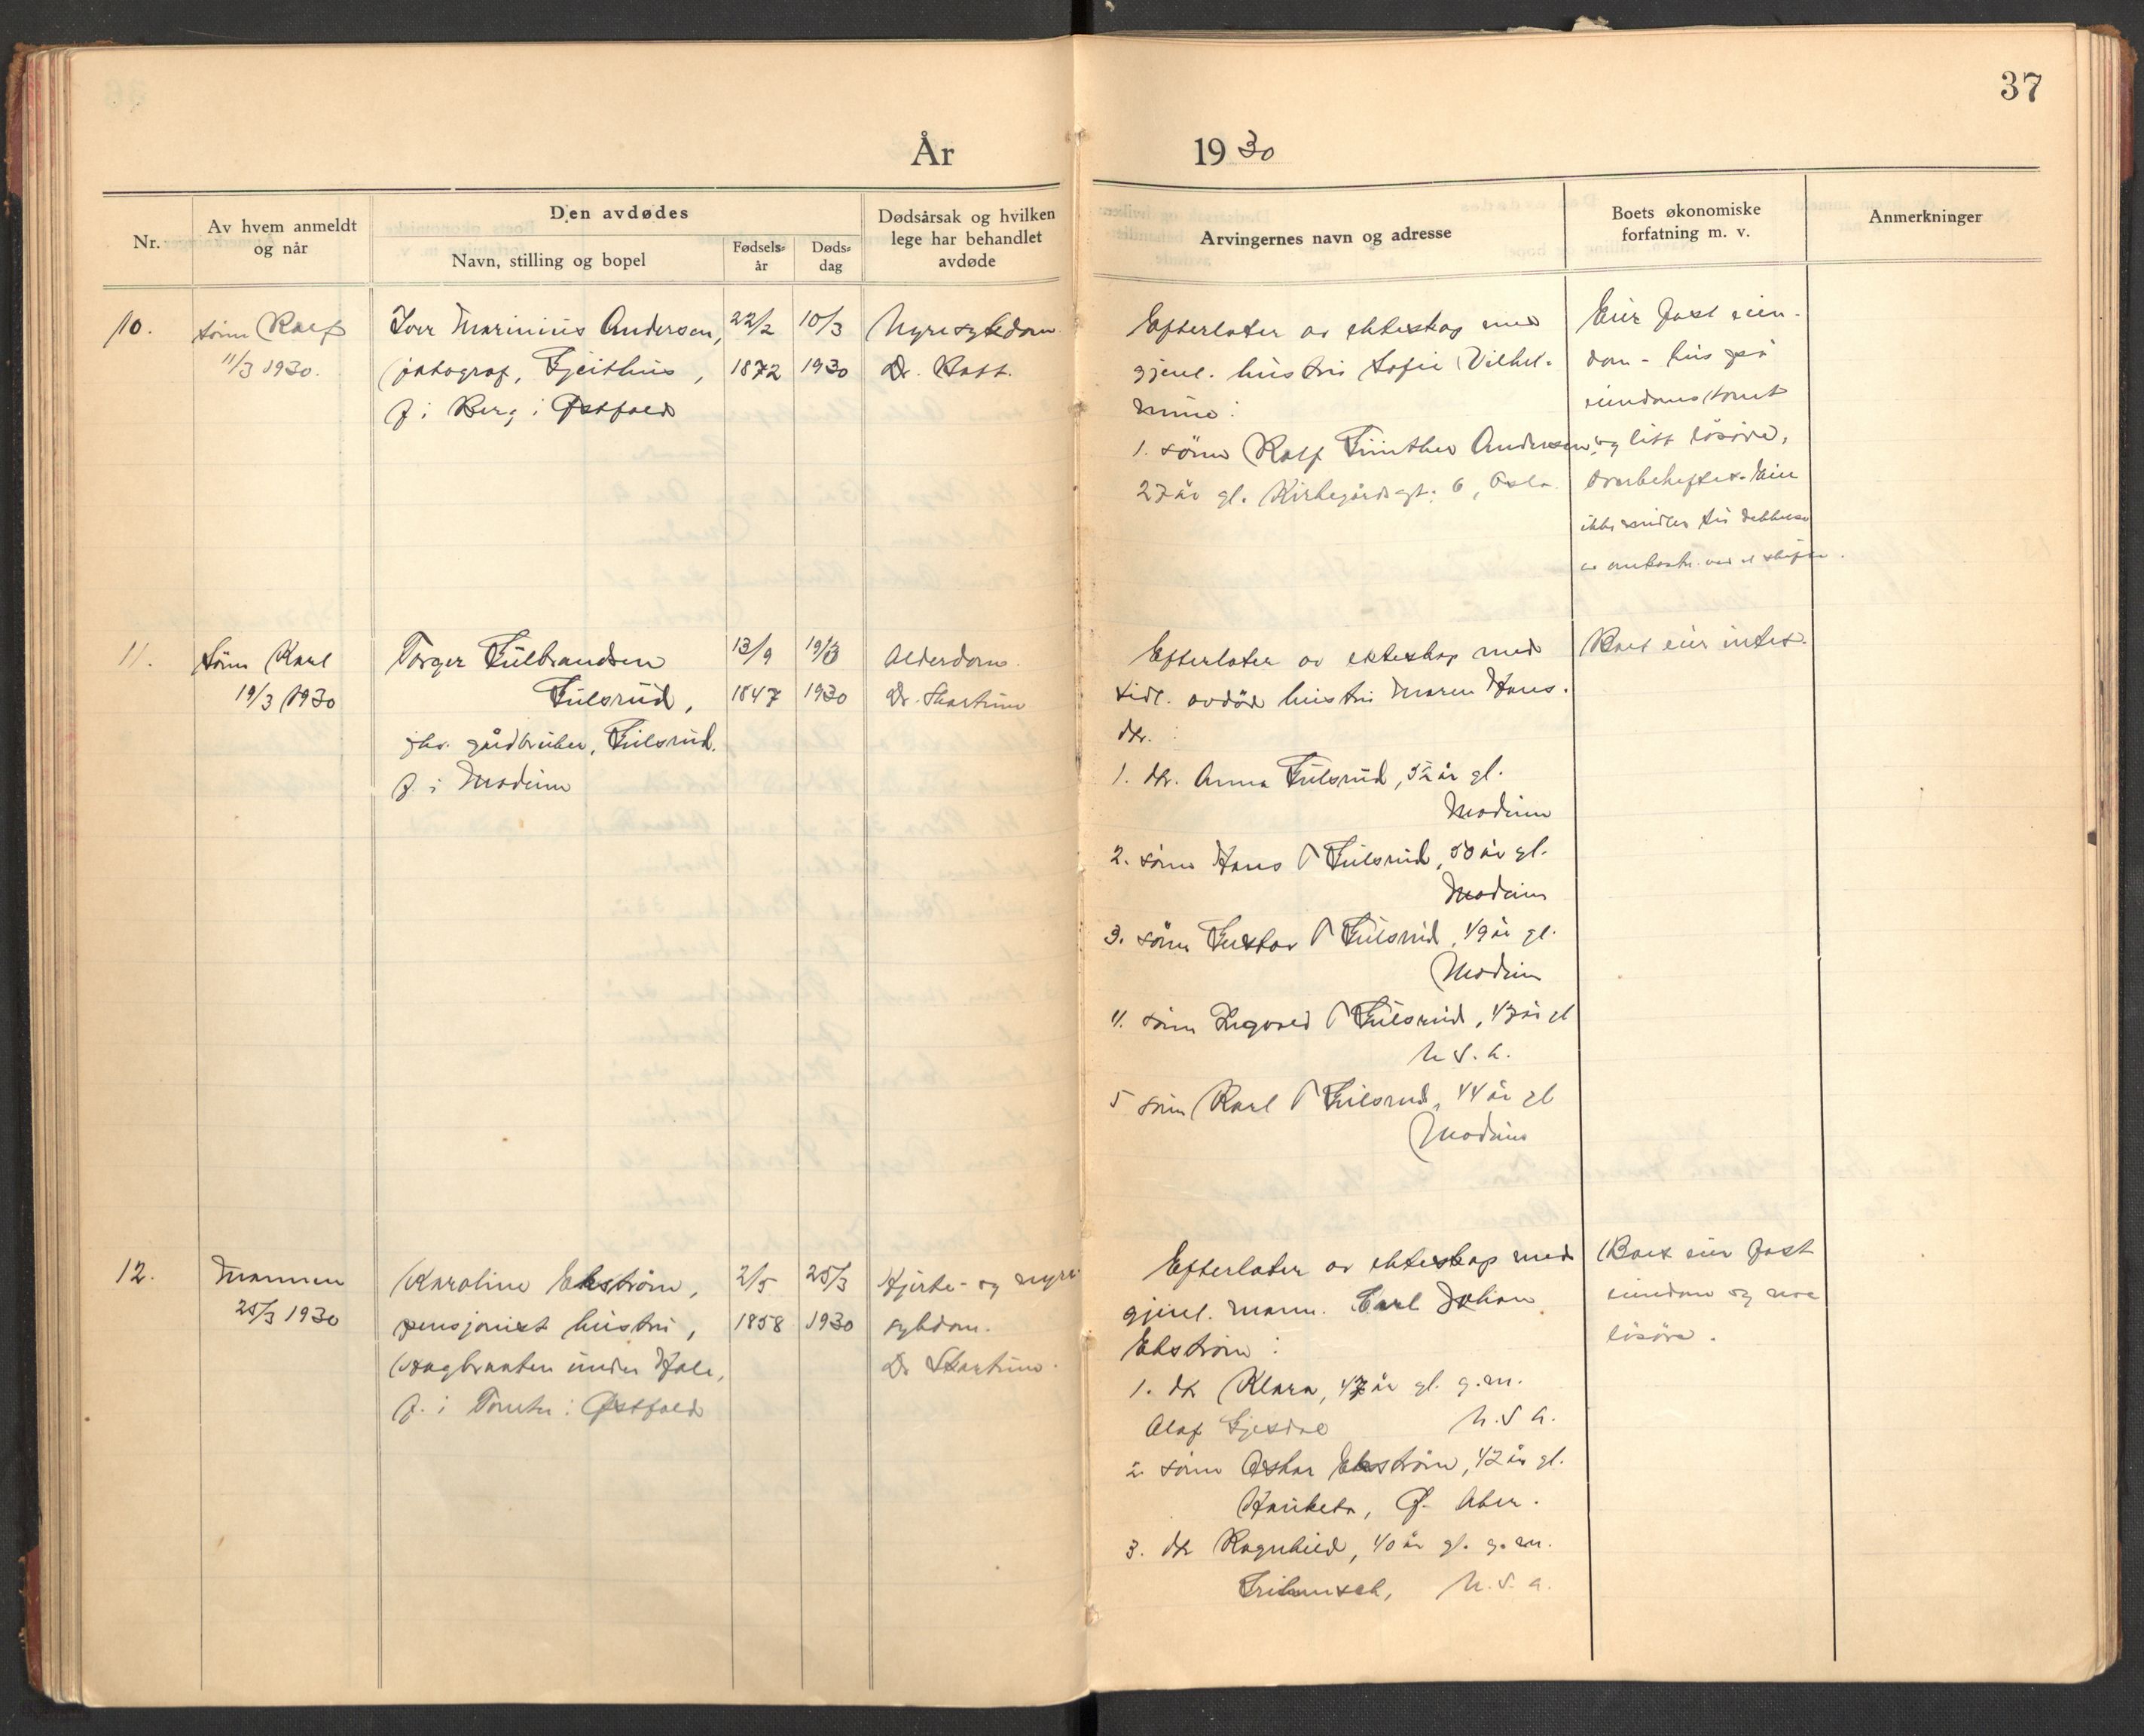 37
År 1930
Nr.
Av hvem anmeldt og når
Den avdødes
Navn, stilling og bopel
Fødsels= år
Døds= dag
Dødsårsak og hvilken lege har behandlet avdøde
Arvingernes navn og adresse
Boets økonomiske forfatning m. v.
Anmerkninger
10.
sønn Ralf
11/3 1930.
Iver Marinius Andersen,
fotograf, Gjeithus,
f i Berg i Østfold
22/2
1872
10/3
1930
Nyresykdom
Dr.
Efterlater av ekteskap med
gjenl. hustru Sofie Vilhel-
mine:
1. sønn Ralf Günther Andersen,
27 år gl. Kirkegårdsgt. 6, Oslo.
Eier fast eien-
dom - hus på
eiendomstomt
og litt løsøre,
overbeheftet. Eier
ikke midler til dekkelse
av omkostn. ved et skifte.
11.
Sønn Karl
19/3 1930
Torger Gulbrandsen
Gulsrud,
fhv. gårdbruker, Gulsrud.
f. i Modum
13/9
1847
19/3
1930
Alderdom.
Dr. Skartum
Efterlater av ekteskap med
tidl. avdøde hustru Maren Hans-
dtr. :
1. dtr. Anna Gulsrud, 52 år gl.
Modum
2. sønn Hans T Gulsrud, 50 år gl.
Modum
3. sønn Gustav T Gulsrud, 49 år gl.
Modum
4. sønn Ingvald T Gulsrud, 47 år gl
U.S.A.
5 sønn Karl T Gulsrud, 44 år gl
Modum
Boet eier intet.
12.
Mannen
25/3 1930
Karoline Ekstrøm,
pensjonist hustru,
Haugbraaten under Hole,
f. i Tomter i Østfold
2/5
1858
25/3
1930
Hjerte- og nyre
sykdom.
Dr Skartum.
Efterlater av ekteskap med
gjenl. mann. Carl Johan
Ekstrøm :
1. dtr Klara, 47 år gl. g.m.
Olaf Gjesdal U.S.A.
2. sønn Oskar Ekstrøm, 42 år gl.
Ø. Aker.
3. dtr Ragnhild, 40 år gl. g.m.
U.S.A.
Boet eier fast
eiendom og noe
løsøre.